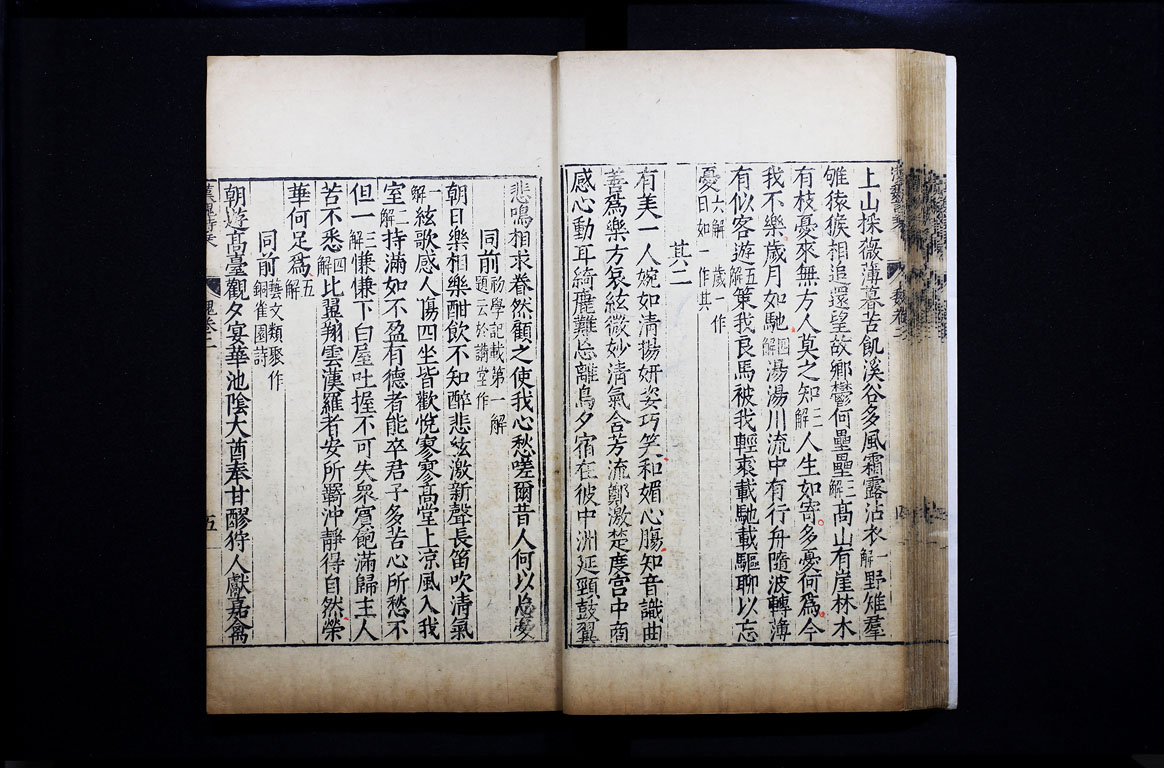 上山採薇薄暮苦飢溪谷多風霜露沾衣一解野雉羣
雊猿猴相追還望故鄉鬱何壘壘二解高山有崖林木
有枝憂來無方人莫之知三解人生如寄多憂何爲今
我不樂歲月如馳四解湯湯川流中有行舟隨波轉薄
有似客遊五解策我良馬被我輕裘載馳載驅聊以忘
憂六解歲一作日如一作其
其二
有美一人婉如清揚妍姿巧笑和媚心腸知音識曲
善爲樂方哀絃微妙清氣含芳流鄭激楚度宮中商
感心動耳綺麗難忘離鳥夕宿在彼中洲延頸鼓翼
悲鳴相求眷然顧之使我心愁嗟爾昔人何以忘憂
同前初學記載第一解題云於講堂作
朝日樂相樂酣飲不知醉悲絃激新聲長笛吹清氣
一解絃歌感人傷四坐皆歡悅寥寥高堂上凉風入我
室二解持滿如不盈有德者能卒君子多苦心所愁不
但一三解慊慊下白屋吐握不可失衆賓飽滿歸主人
苦不悉四解比翼翔雲漢羅者安所羈沖靜得自然榮
華何足爲五解
同前藝文類聚作銅雀園詩
朝遊高臺觀夕宴華池陰大酋奉甘醪狩人獻嘉禽
魏卷二
五